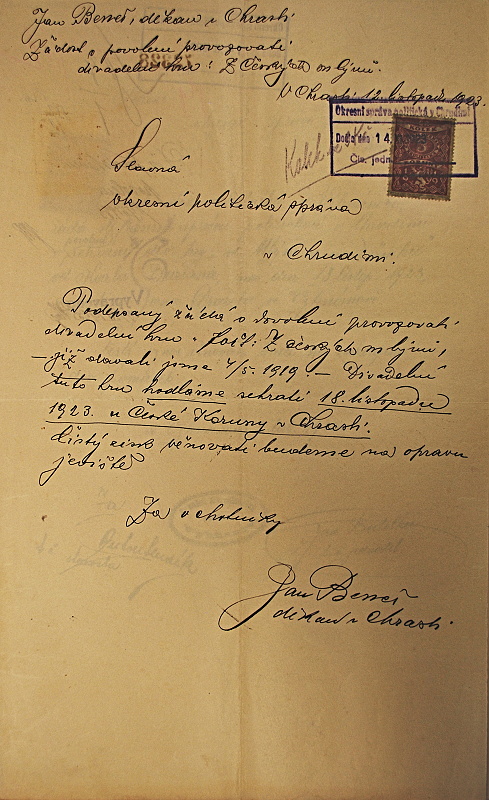 Jan Beneš, děkan v Chrasti
Žádost o povolení provozovati
divadelní hru: Z českých mlýnů.
V Chrasti 12. listopadu 1923.
Okresní správa politická v Chrudimi
Došlo dne 14
Čís. jedn.
Slavná
okresní politická správa
v Chrudimi.
Podepsaný žádá o dovolení provozovati
divadelní hru Z českých mlýnů,
– již dávali jsme 4/5. 1919. – Divadelní
tuto hru hodláme sehráti 18. listopadu
1923. u České Koruny v Chrasti.
Čistý zisk věnovati budeme na opravu
jeviště
Za ochotníky
Jan Beneš
děkan v Chrasti